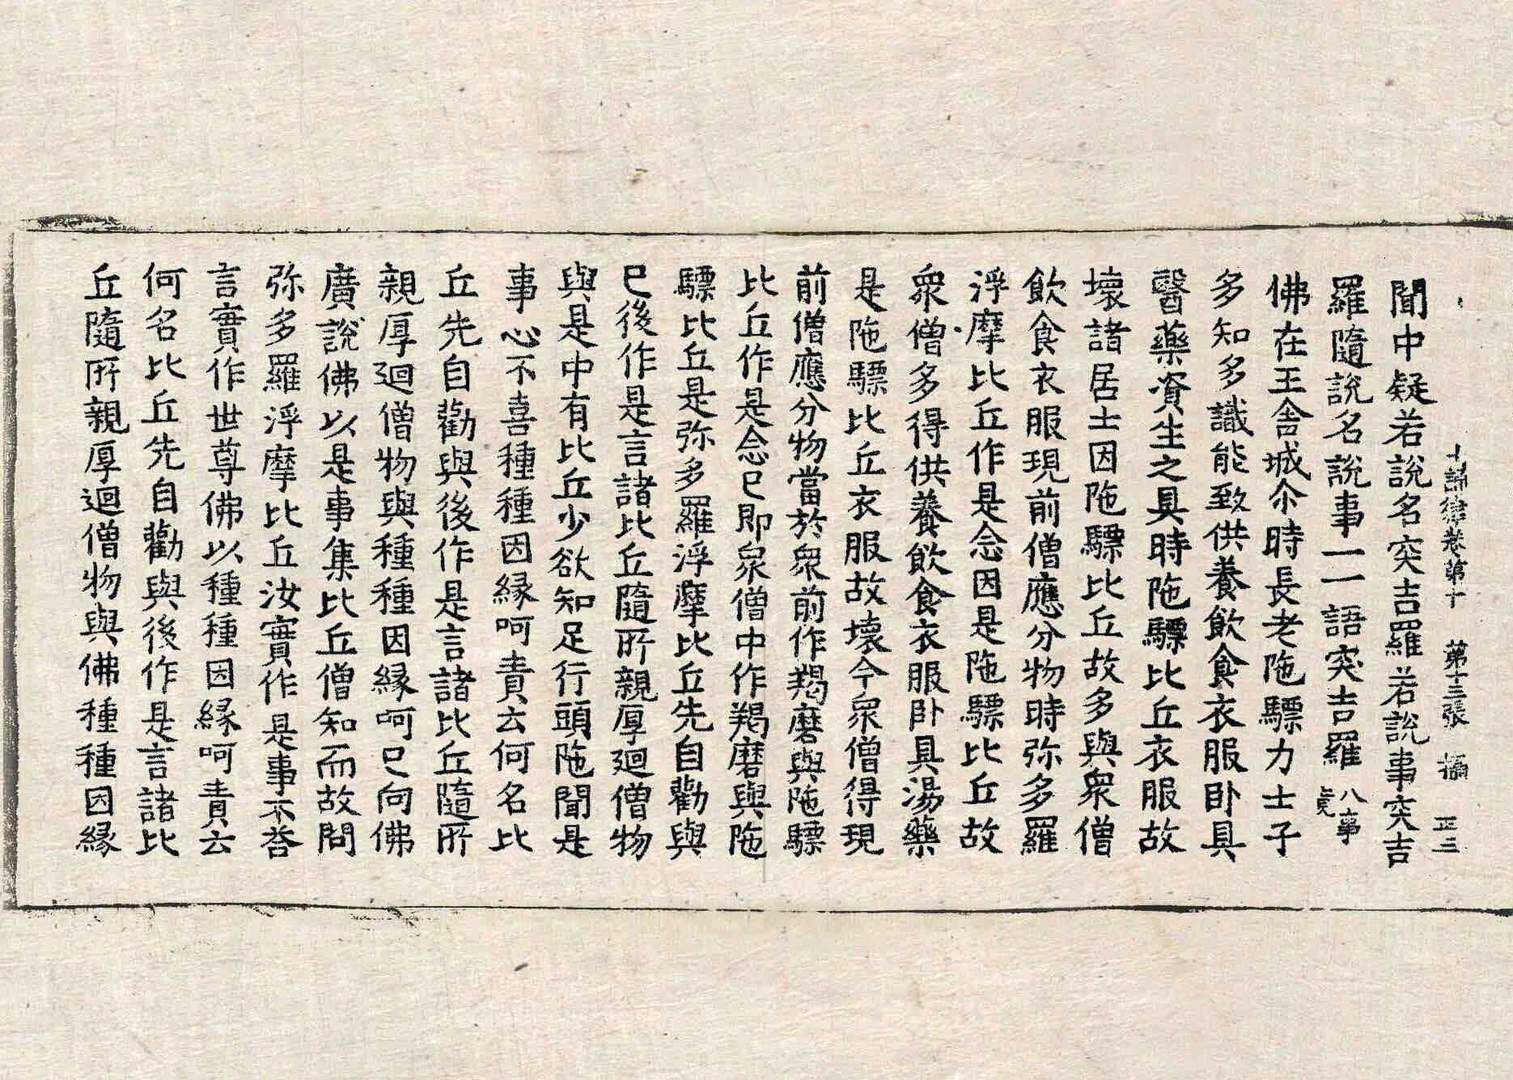 十誦律卷第十　第十三張　攝　正三
聞中疑若說名突吉羅若說事突吉
羅隨說名說事一一語突吉羅八事竟
佛在王舍城尒時長老陁驃力士子
多知多識能致供養飲食衣服卧具
醫藥資生之具時陁驃比丘衣服故
壞諸居士因陁驃比丘故多與衆僧
飲食衣服現前僧應分物時弥多羅
浮摩比丘作是念因是陁驃比丘故
衆僧多得供養飲食衣服卧具湯藥
是陁驃比丘衣服故壞今衆僧得現
前僧應分物當於衆前作羯磨與陁驃
比丘作是念已即衆僧中作羯磨與陁
驃比丘是弥多羅浮摩比丘先自勸與
已後作是言諸比丘隨所親厚迴僧物
與是中有比丘少欲知足行頭陁聞是
事心不喜種種因緣呵責云何名比
丘先自勸與後作是言諸比丘隨所
親厚迴僧物與種種因緣呵已向佛
廣說佛以是事集比丘僧知而故問
弥多羅浮摩比丘汝實作是事不荅
言實作世尊佛以種種因緣呵責云
何名比丘先自勸與後作是言諸比
丘隨所親厚迴僧物與佛種種因緣